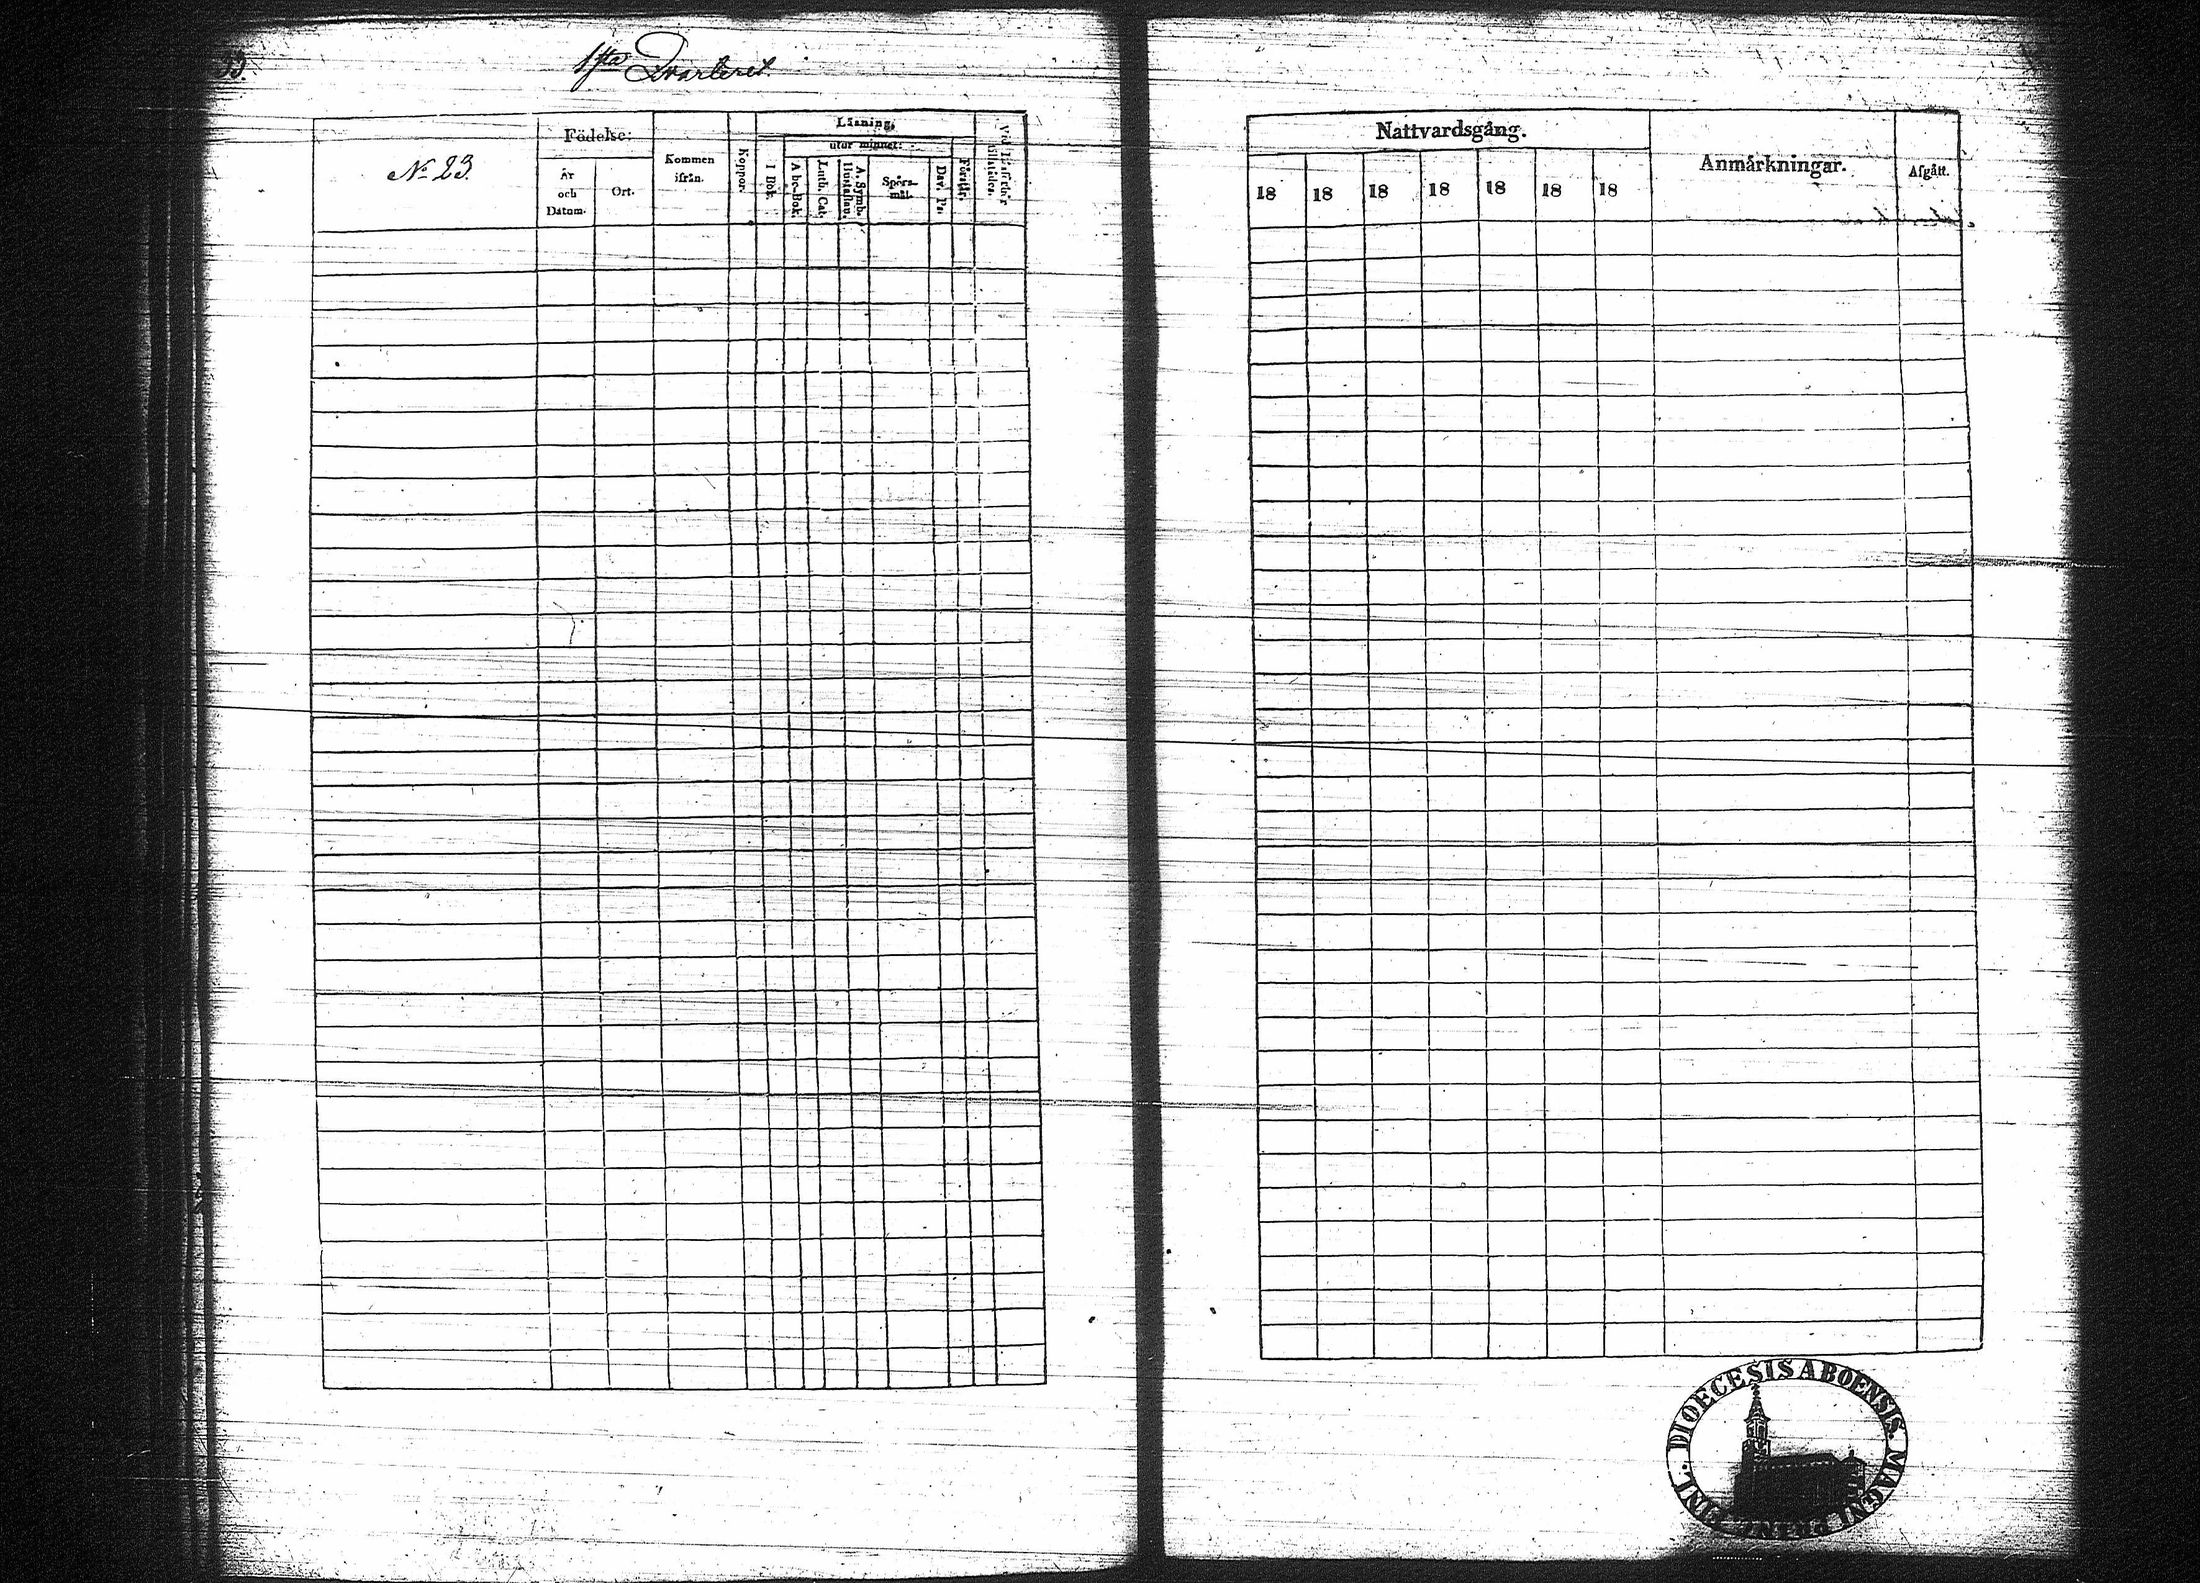 1sta Qvarteret.
No 23.
Födelse:
År
och
Datum.
Ort.
Kommen
ifrån.
Koppor.
Läsning,
utur minnet:
I Bok.
Abc-Bok.
Luth. Cat.
A. Symb.
Hustaflan.
Spörs-
mål.
Dav. Ps.
Förstår.
Nattvardsgång.
18 18 18 18 18 18 18
Anmärkningar.
Afgått.
DIOECESIS ABOENSIS. MAGNI PRINC. FINL.